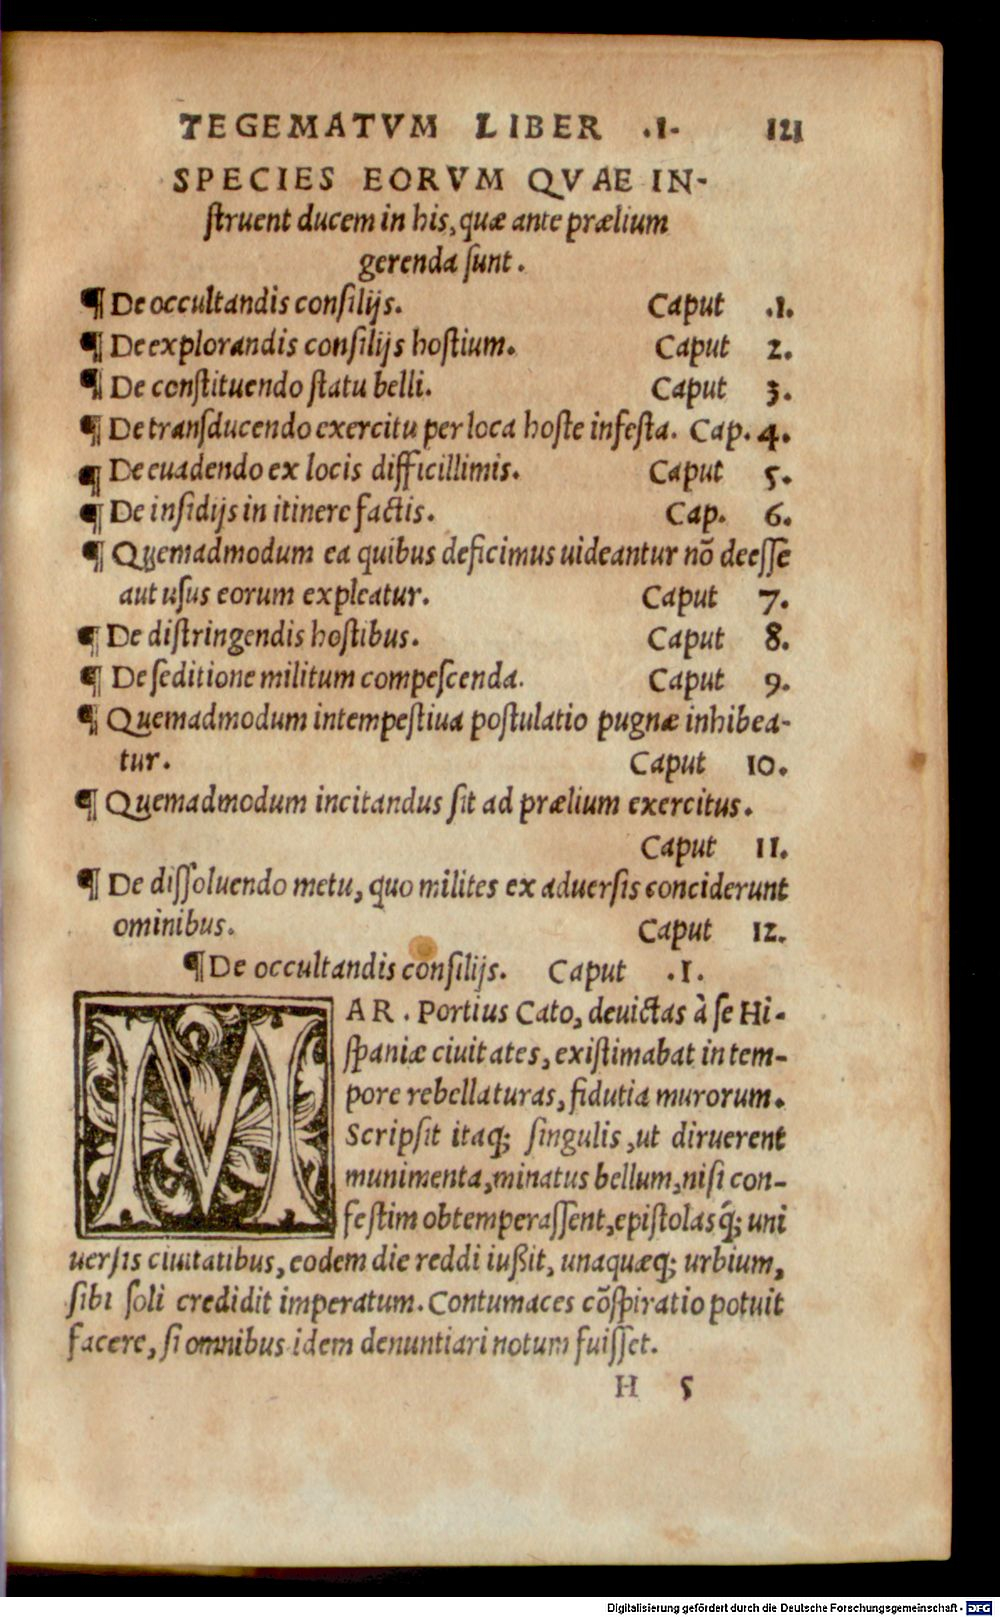 TEGEMATVM LIBER .I. 121
SPECIES EORVM QVAE IN-
ſtruent ducem in his, quæ ante prælium
gerenda ſunt.
¶ De occultandis conſilijs. Caput .I.
¶ De explorandis conſilijs hoſtium. Caput 2.
¶ De conſtituendo ſtatu belli. Caput 3.
¶ De tranſducendo exercitu per loca hoſte infeſta. Cap. 4.
¶ De euadendo ex locis difficillimis. Caput 5.
¶ De inſidijs in itinere factis. Cap. 6.
¶ Quemadmodum ea quibus deficimus uideantur nō deeſſe
aut uſus eorum expleatur. Caput 7.
¶ De diſtringendis hoſtibus. Caput 8.
¶ De ſeditione militum compeſcenda. Caput 9.
¶ Quemadmodum intempeſtiua poſtulatio pugnæ inhibea-
tur. Caput 10.
¶ Quemadmodum incitandus ſit ad prælium exercitus.
Caput 11.
¶ De diſſoluendo metu, quo milites ex aduerſis conciderunt
ominibus. Caput 12.
¶ De occultandis conſilijs. Caput .I.
MAR. Portius Cato, deuictas à ſe Hi-
ſpaniæ ciuitates, exiſtimabat in tem-
pore rebellaturas, fidutia murorum.
Scripſit itaq; ſingulis, ut diruerent
munimenta, minatus bellum, niſi con-
feſtim obtemperaſſent, epiſtolasq́; uni
uerſis ciuitatibus, eodem die reddi iußit, unaquæq; urbium,
ſibi ſoli credidit imperatum. Contumaces cōſpiratio potuit
facere, ſi omnibus idem denuntiari notum fuiſſet.
H 5
Digitalisierung gefördert durch die Deutsche Forschungsgemeinschaft - DFG